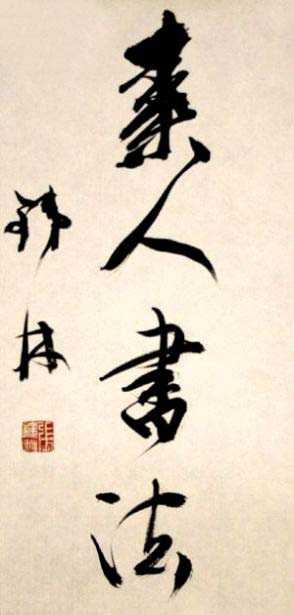 素人書法
鐵林